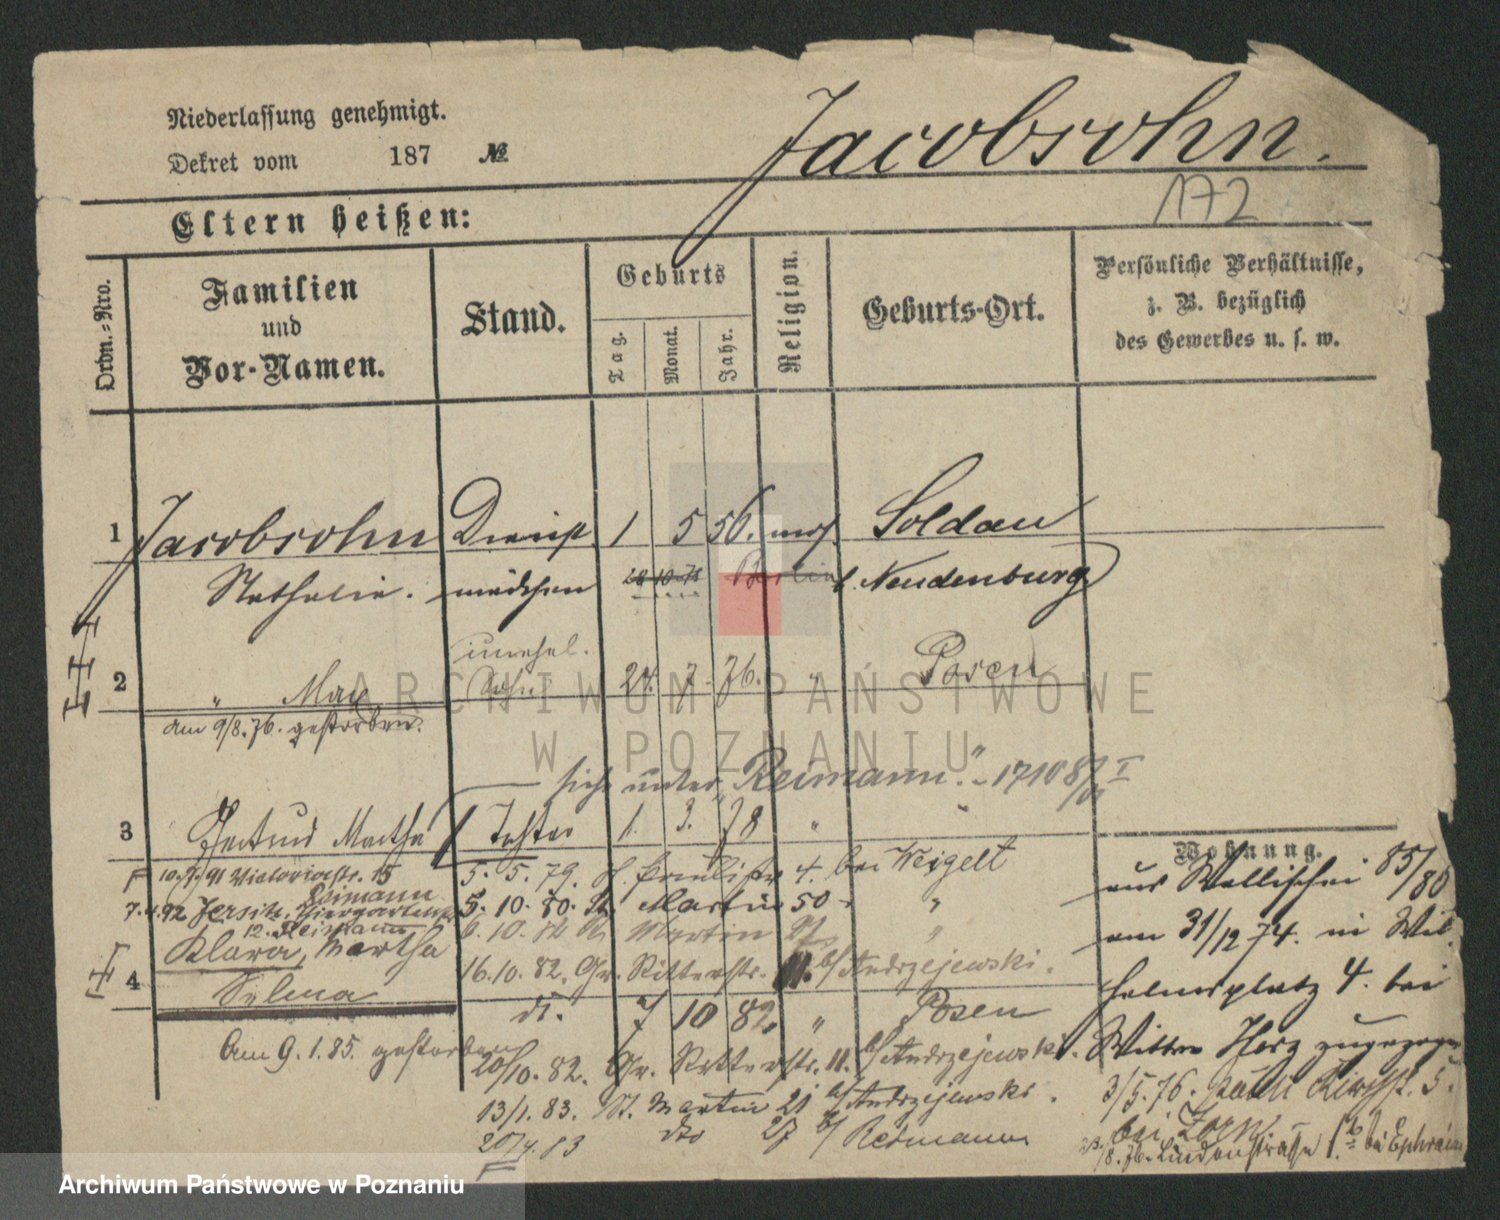 Niederlassung genehmigt.
Dekret vom 187 №
Jacobsohn.
172
Eltern heißen:
Ordn.-Nro.
Familien
und
Vor-Namen.
Stand.
Geburts
Tag.
Monat.
Jahr.
Religion.
Geburts-Ort.
Persönliche Verhältnisse,
z. B. bezüglich
des Gewerbes u. s. w.
1 Jacobsohn Dienst 1 5 56. mos. Soldau
Nathalie. mädchen Neudenburg
unehel.
2 " Max Sohn 24. 7. 76. " Posen
am 9/8. 76. gestorben.
siehe unter "Reimann".
3 Gertrud Martha Tochter 1. 3. 78 " "
Wohnung.
10. 91 Victoriastr. 15 5. 5. 79. 4. bei Weigelt
Reimann
7.4.92 Jersitz, Thiergartenstr. 5. 10. 80. St. Martin 50 "
12. Reimann 6. 10. St. Martin "
Klara, Martha 16. 10. 82. Gr. Ritterstr. 11. b/ Andrzejewski.
4 Selma dt. 7 10 82. " Posen
Am 9. 1. 85. gestorben
20/10. 82. Gr. Ritterstr. 11. b/ Andrzejewski.
13/1. 83. St. Martin 21 b/ Andrzejewski.
20/4. 83 dto 27 b/ Reimann
aus Wallischei 85/86
am 31/12 74. in Wil-
helmsplatz 4. bei
Wittwe Herz zugezogen
3/5. 76. 5.
bei
8. 76. Lindenstrasse bei Ephraim
ARCHIWUM PAŃSTWOWE
W POZNANIU
Archiwum Państwowe w Poznaniu